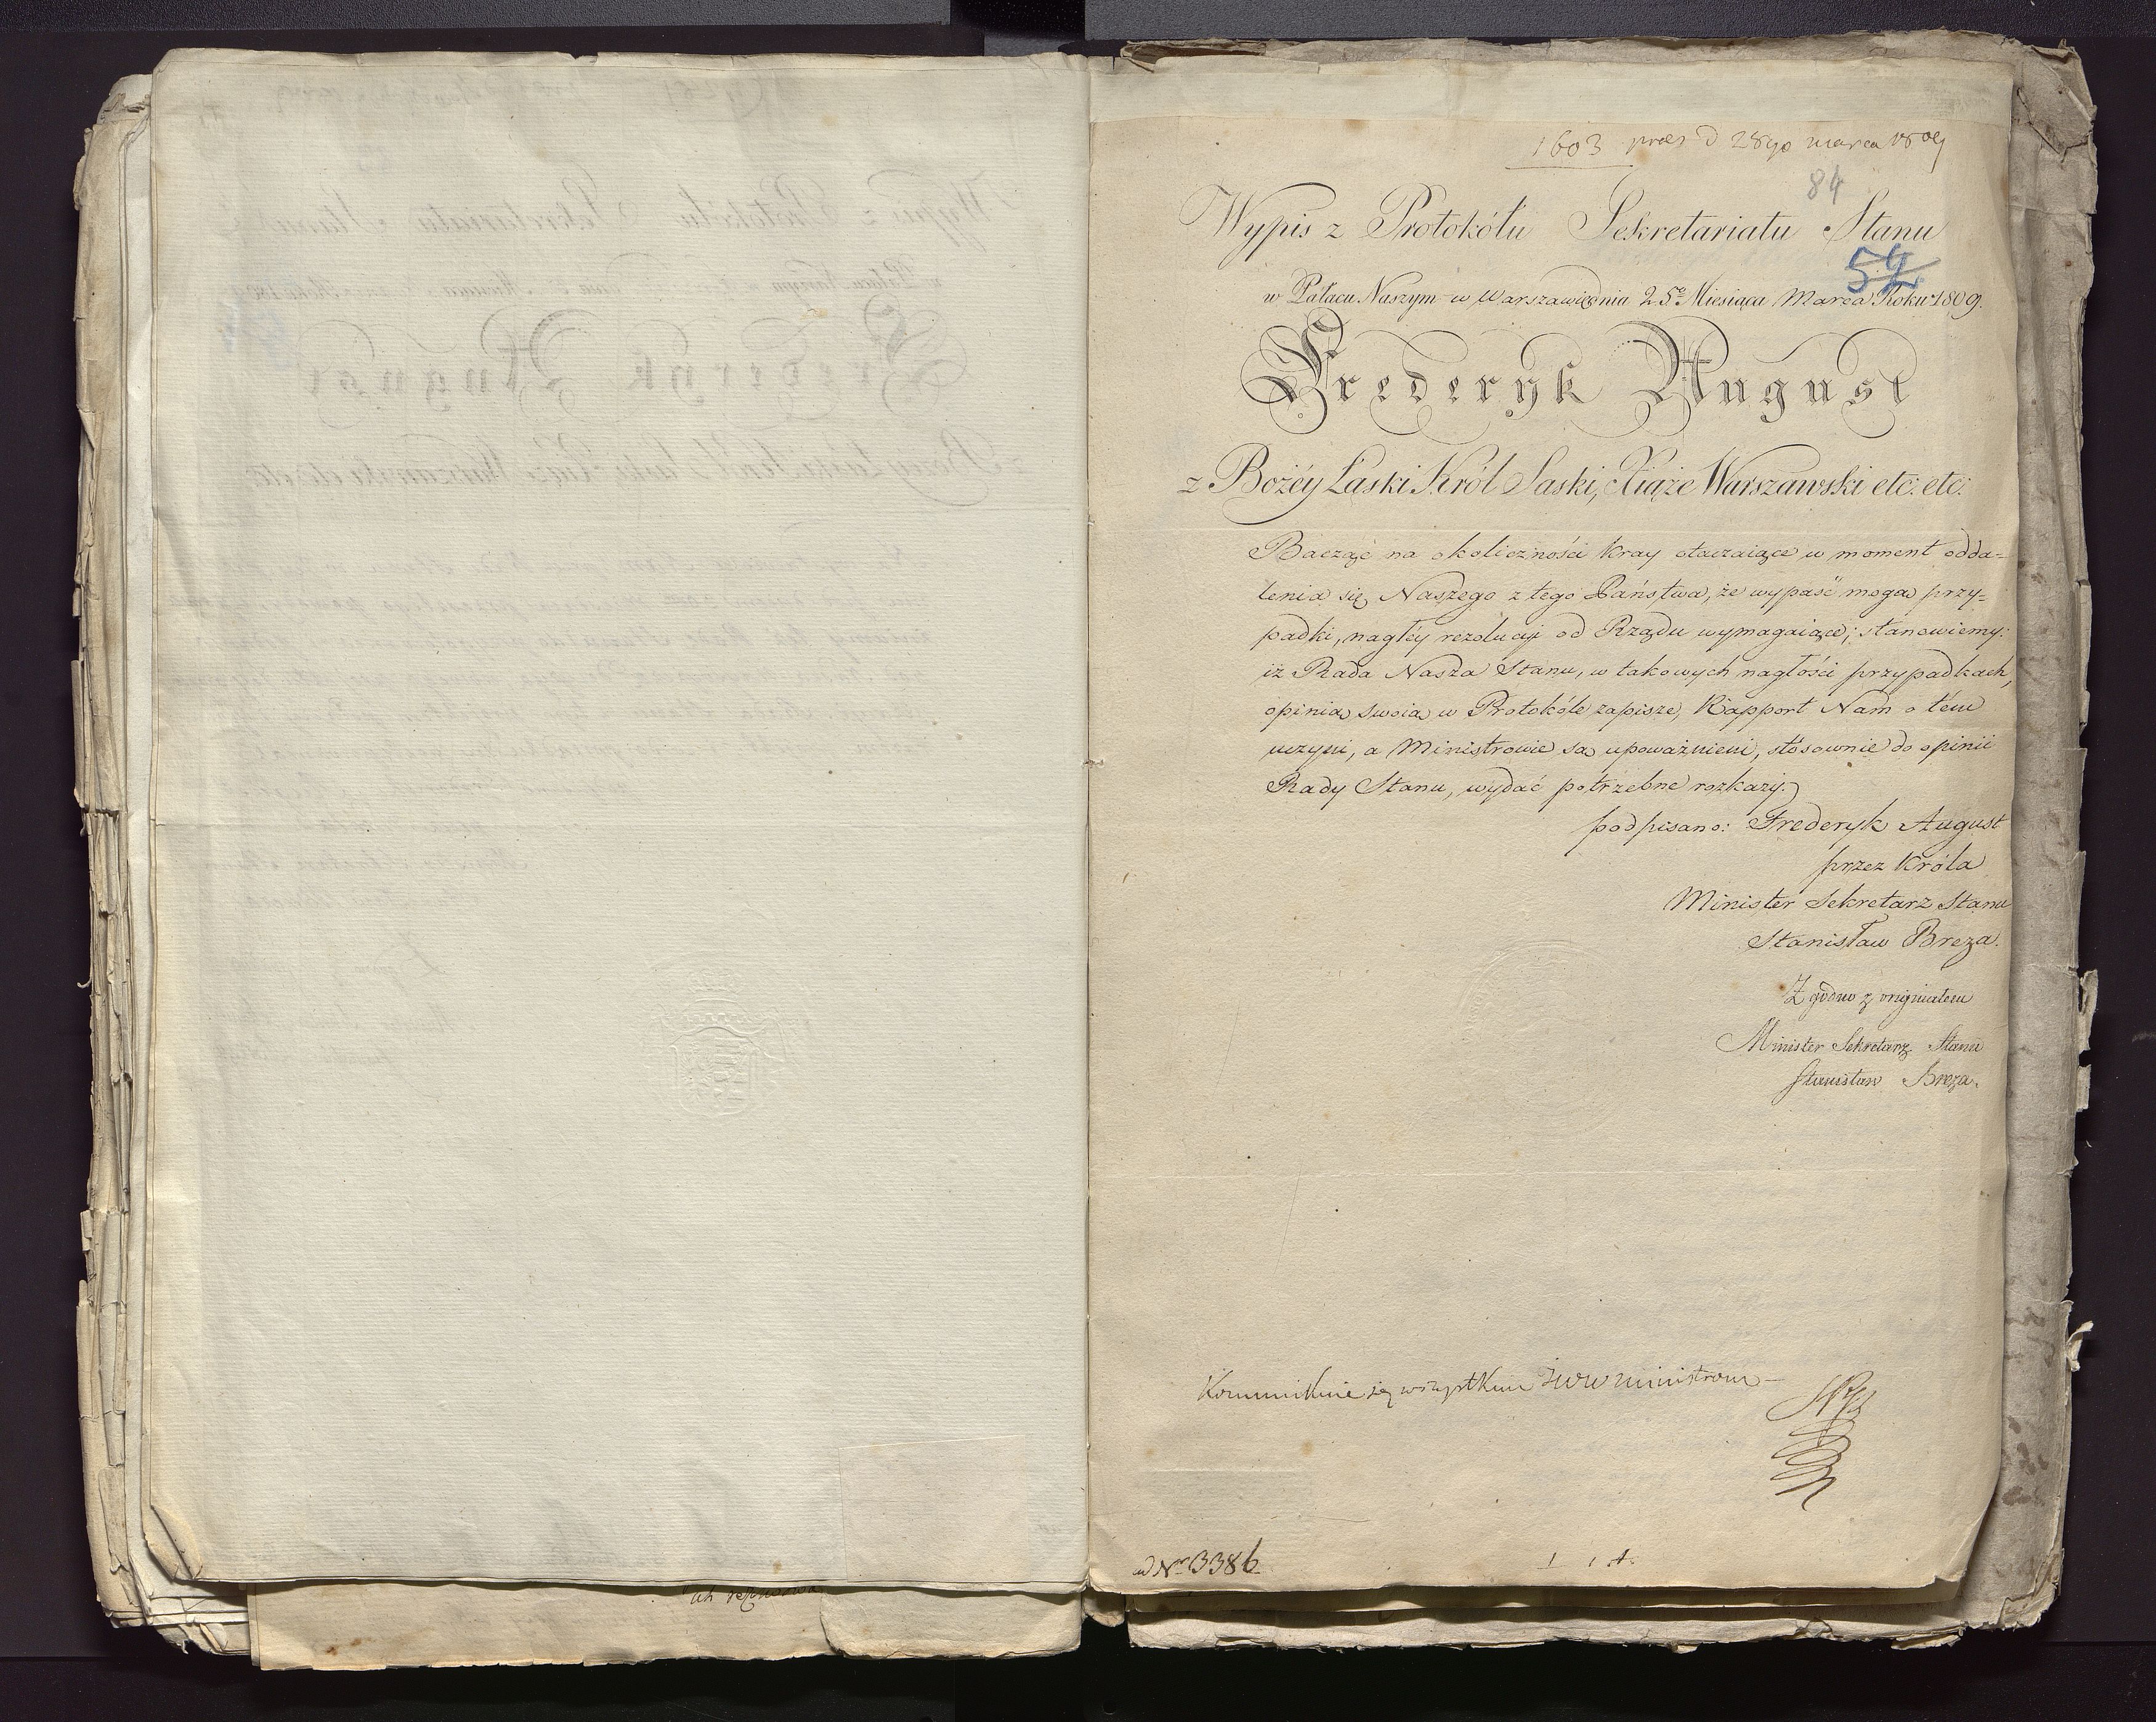 1603 praes d 28go marca 1809
84
Wypis z Protokółu Sekretariatu Stanu
54
w Pałacu Naszym w Warszawie dnia 25o Miesiąca Marca Roku 1809.
Frederyk August
z Bożéy Łaski Król Saski, Xiąże Warszawski etc: etc:
Bacząc na okoliczności kray otaczaiące w moment odda-
lenia się Naszego z tego Państwa, że wypaść mogą przy-
padki, nagłéy rezolucyi od Rządu wymagaiące; stanowiemy:
iż Rada Nasza Stanu, w takowych nagłości przypadkach,
opinią swoią w Protokóle zapisze, Rapport Nam o tém
uczyni, a Ministrowie są upoważnieni, stósownie do opinii
Rady Stanu, wydać potrzebne rozkazy.
podpisano: Frederyk August
przez Króla
Minister Sekretarz Stanu
Stanisław Breza.
Zgodno z originałem
Minister Sekretarz Stanu
Stanisław Breza.
Kommunikuie się wszystkim JWW ministrom –
ad Nro 3386